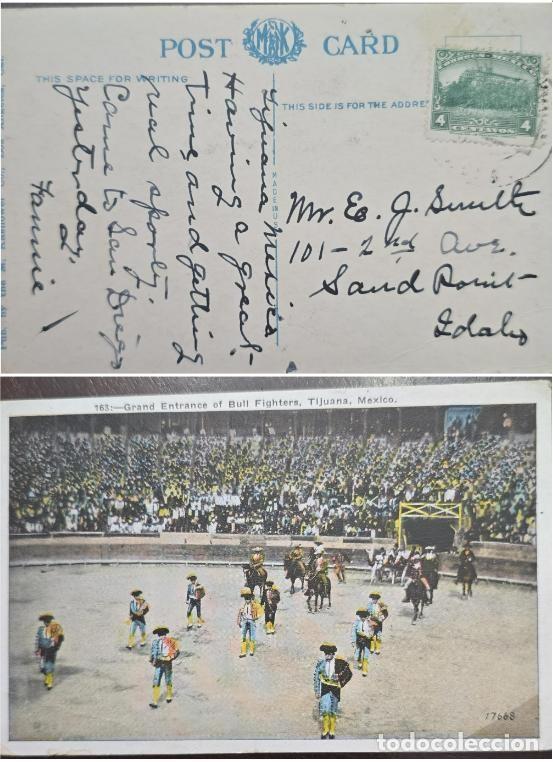 POST CARD
THIS SPACE FOR WRITING
THIS SIDE IS FOR THE ADDRE
MADE IN U
4 4
CENTAVOS
Tijuana Mexico
Having a great
Time and getting
real sporty.
Came to San Diego
Yesterday.
Fannie
Mr. E. J. Smith
101-2nd Ave.
Sand Point
Idaho
163:—Grand Entrance of Bull Fighters, Tijuana, Mexico.
17668
todocoleccion